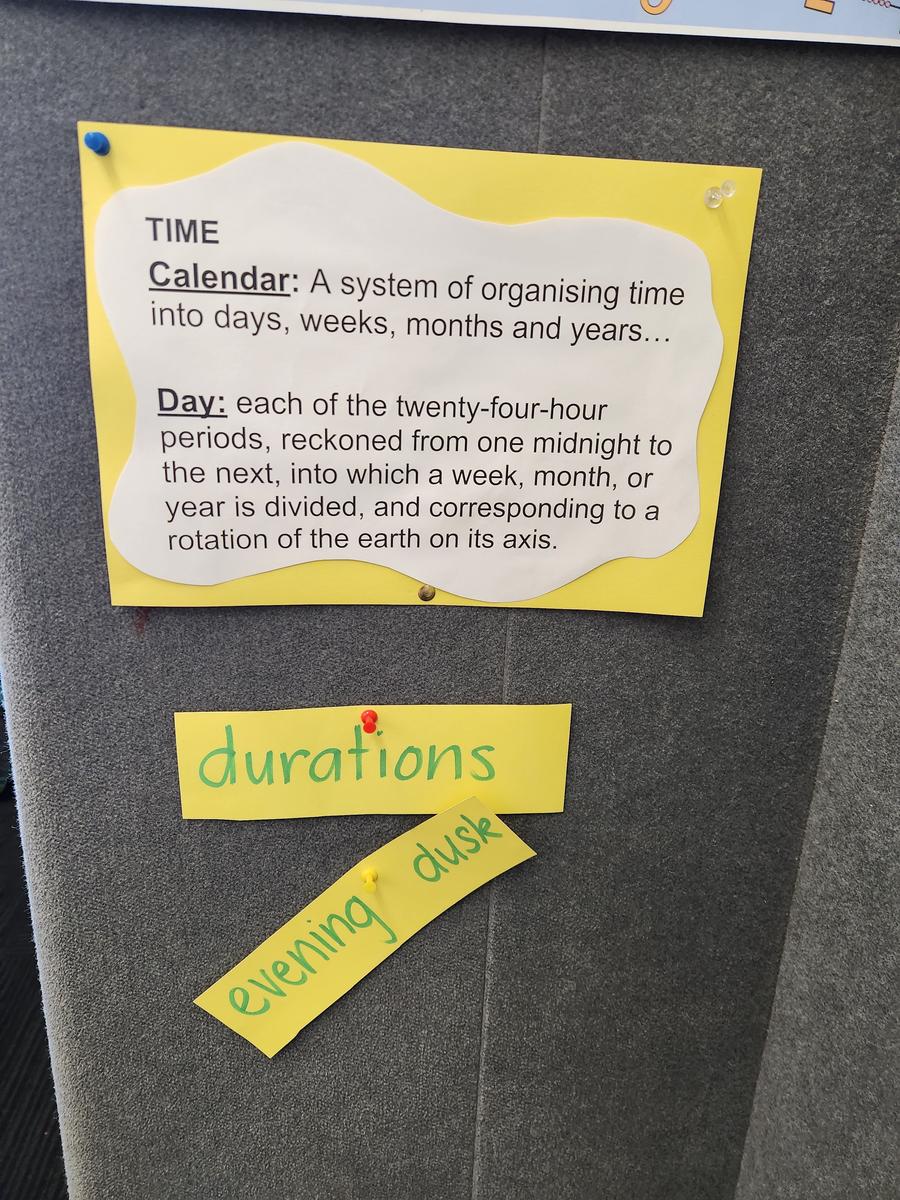 TIME
Calendar: A system of organising time
into days, weeks, months and years...
Day: each of the twenty-four-hour
periods, reckoned from one midnight to
the next, into which a week, month, or
year is divided, and corresponding to a
rotation of the earth on its axis.
durations
evening dusk